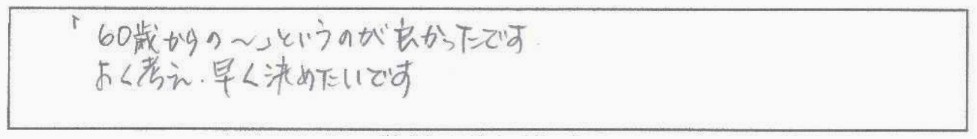 「60歳からの～」というのが良かったです
よく考え、早く決めたいです